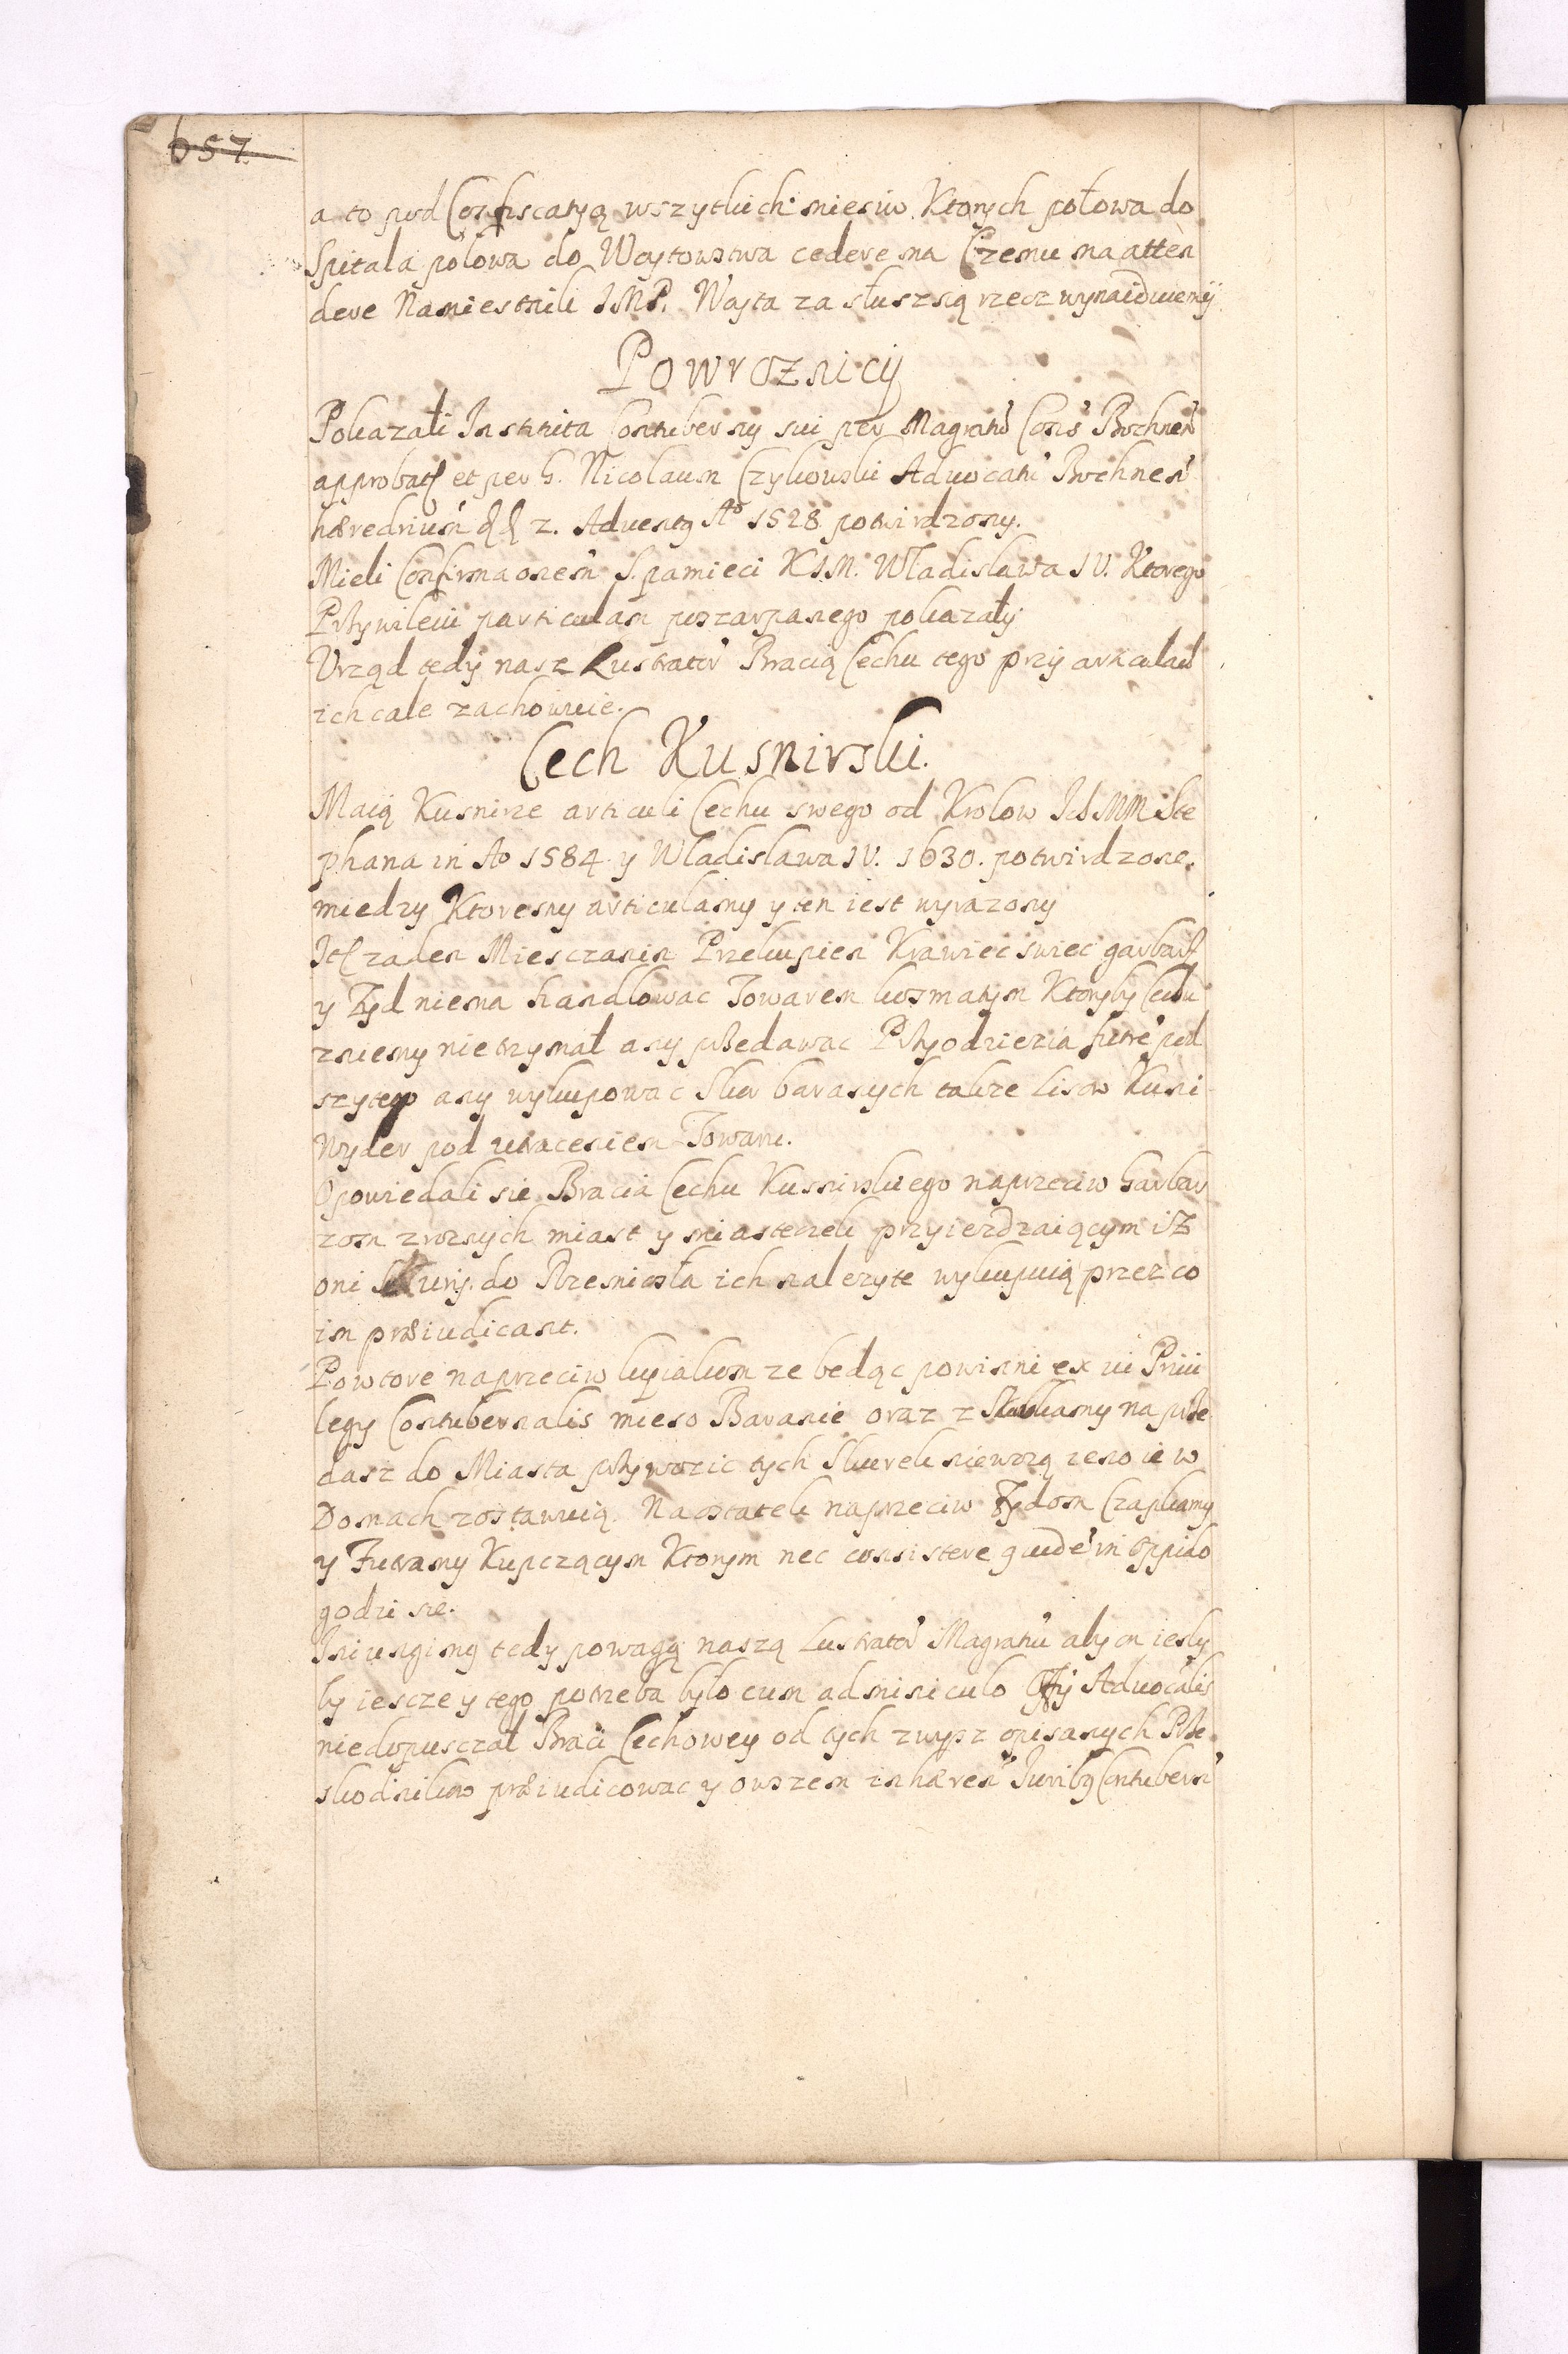 657
a to pod Confiscatyą wszytkich miesiw. Ktorych połowa do
Spitala połowa do Woytowstwa cedere ma Czemu ma atten
dere Namiestnik JMP. Woyta za słuszną rzecz wynaiduiemy
Powroznicy
Pokazali Instituta Contubernij sui per Magratū Conś Bochneń
approbata et per G. Nicolaum Czykowski Advocatū Bochneń
hæredriuḿ 2. Adventq Aº 1528 potwirdzony.
Mieli Confirmaonem S. pamieci KJM. Władislawa IV. Ktorego
Przywileiu particulam poszarpanego pokazały
Vrząd tedy nasz Lustratoŕ Bracią Cechu tego przy articulach
ich cale zachowuie.
Cech Kusnirski.
Maią Kusnirze articuli Cechu swego od Krolow Ich MM Ste
phana in Aº 1584 y Wladislawa IV. 1630. potwirdzone.
miedzy Ktoremy articulamy y ten iest wyrazony
Jtȩ zaden Miesczanin Przekupien Krawiec swiec garbarz
y Zyd niema handlowac Towarem kosmatym Ktoryby Cechu
zniemy nietrzymał any przedawac Przyodzieżia futrē pod
szytego any wykupowac Skor baranych takze Lisow Kuni
Wyder pod utraceniem Towaru.
Opowiedali sie Bracia Cechu Kusnirskiego naprzeciw Garbar
zom zroznych miast y miasteczek przyiezdzaiącym iz
oni Skury. do Rzemiosła ich nalezyte wykupuią przez co
im præiudicant.
Powtore naprzeciw kupialkom ze bedąc powinni ex vi Privi
legy Contubernalis mieso Baranie oraz z Skorkamy na prze
dasz do Miasta przywozic tych Skorek niewozą ieno ie w
Domach zostawuią. Na ostatek naprzeciw Zydom Czapkamy
y Futramy Kupczącym Ktorym nec consistere quidē in Oppido
godzi sie.
Iniungimy tedy powagą naszą Lustratoŕ Magratui aby on iesly
by iescze y tego potrzeba było cum adminiculo Offy Advocalis
niedopusczał Braci Cechowey od tych zwysz opisanych Prze
skodnikow præiudicowac y owszem inhæreń Juribq Contuberń